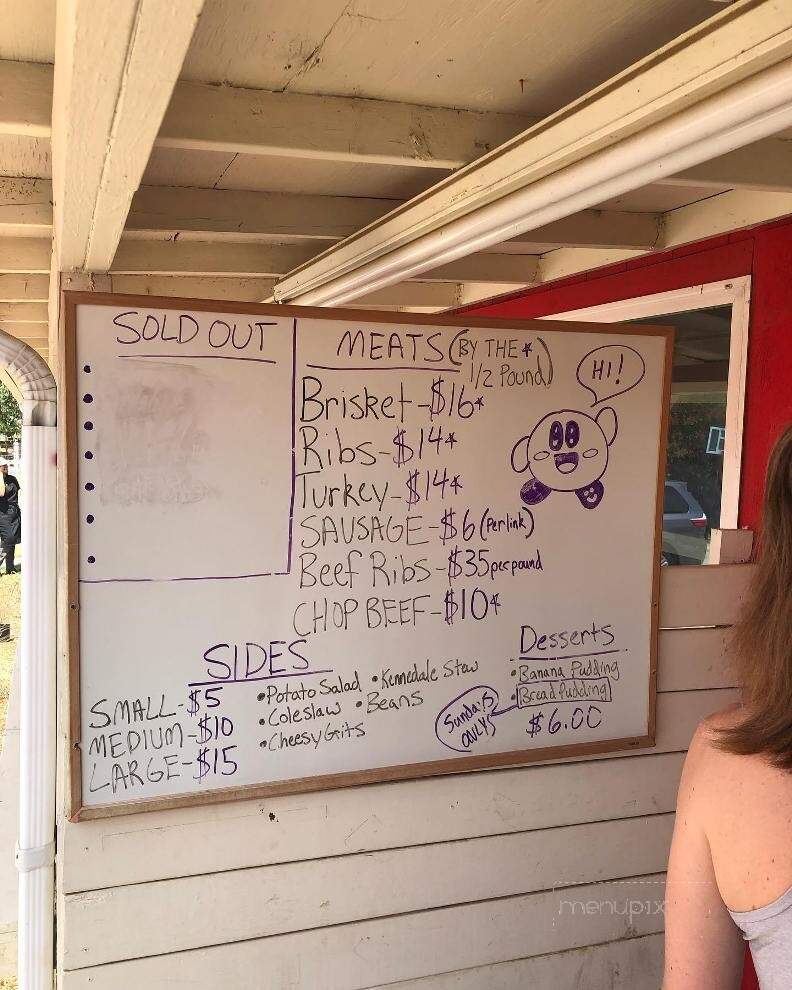 SOLD OUT
MEATS (BY THE *
1/2 Pound)
HI!
Brisket-$16*
Ribs-$14*
Turkey-$14*
SAUSAGE-$6 (Per link)
Beef Ribs-$35 per pound
CHOP BEEF-$10*
SIDES
SMALL-$5
MEDIUM-$10
LARGE-$15
•Potato Salad •Kennedale Stew
•Coleslaw •Beans
•Cheesy Grits
Desserts
•Banana Pudding
•Bread Pudding
Sundays
ONLY
$6.00
menupix